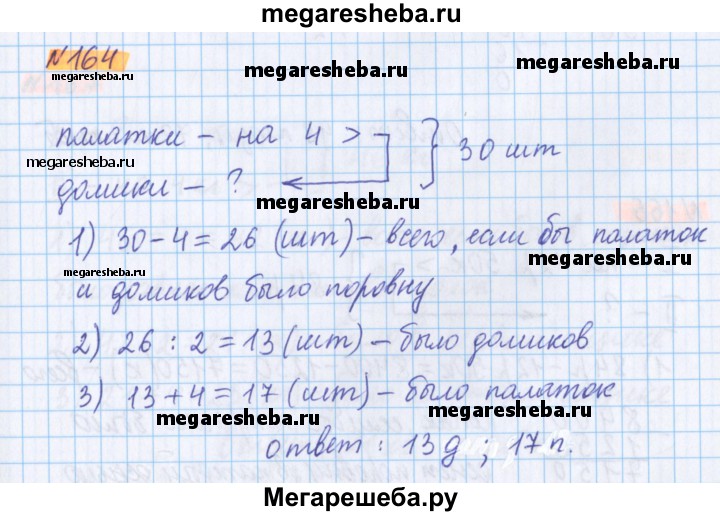 megaresheba.ru
№164
megaresheba.ru
megaresheba.ru
megaresheba.ru
палатки – на 4 > } 30 шт
megaresheba.ru
домики – ?
megaresheba.ru
1) 30 – 4 = 26 (шт) – всего, если бы палаток
megaresheba.ru
megaresheba.ru
и домиков было поровну
2) 26 : 2 = 13 (шт) – было домиков
3) 13 + 4 = 17 (шт) – было палаток
megaresheba.ru
megaresheba.ru
Ответ : 13 д ; 17 п.
Мегарешеба.ру